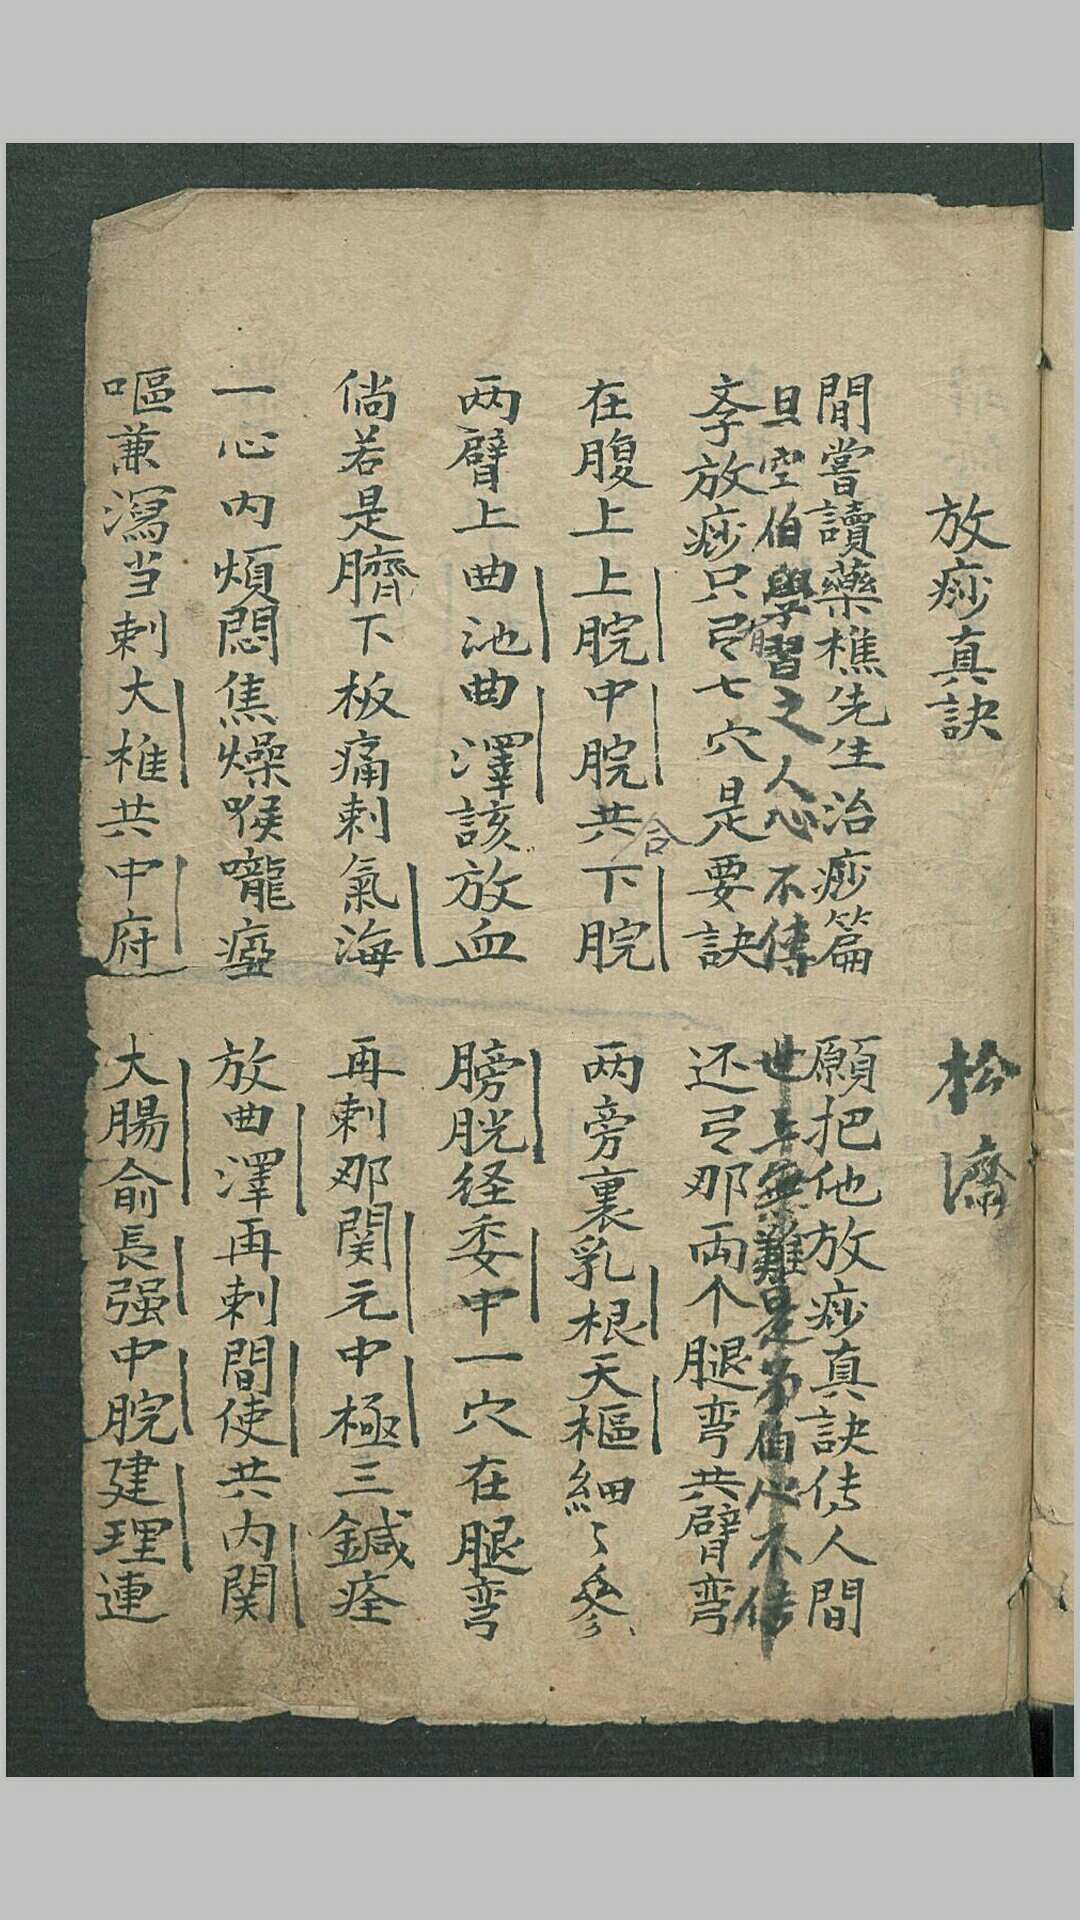 放痧真訣 松濤
閒嘗讀藥樵先生治痧篇 願把他放痧真訣传人間
旦空伯學習之人心不傳 世上 難是另伯心不传
季放痧只弓七穴是要訣 还弓那両个腿弯共臂弯
在腹上上脘中脘共下脘 两旁裏乳根天樞細々參
合
两臂上曲池曲澤該放血 膀胱经委中一穴在腿弯
倘若是臍下板痛刺氣海 再刺那関元中極三鍼痊
一心内煩悶焦燥喉嚨瘂 放曲澤再刺間使共内関
嘔兼瀉当刺大椎共中府 大腸俞長强中脘建理連